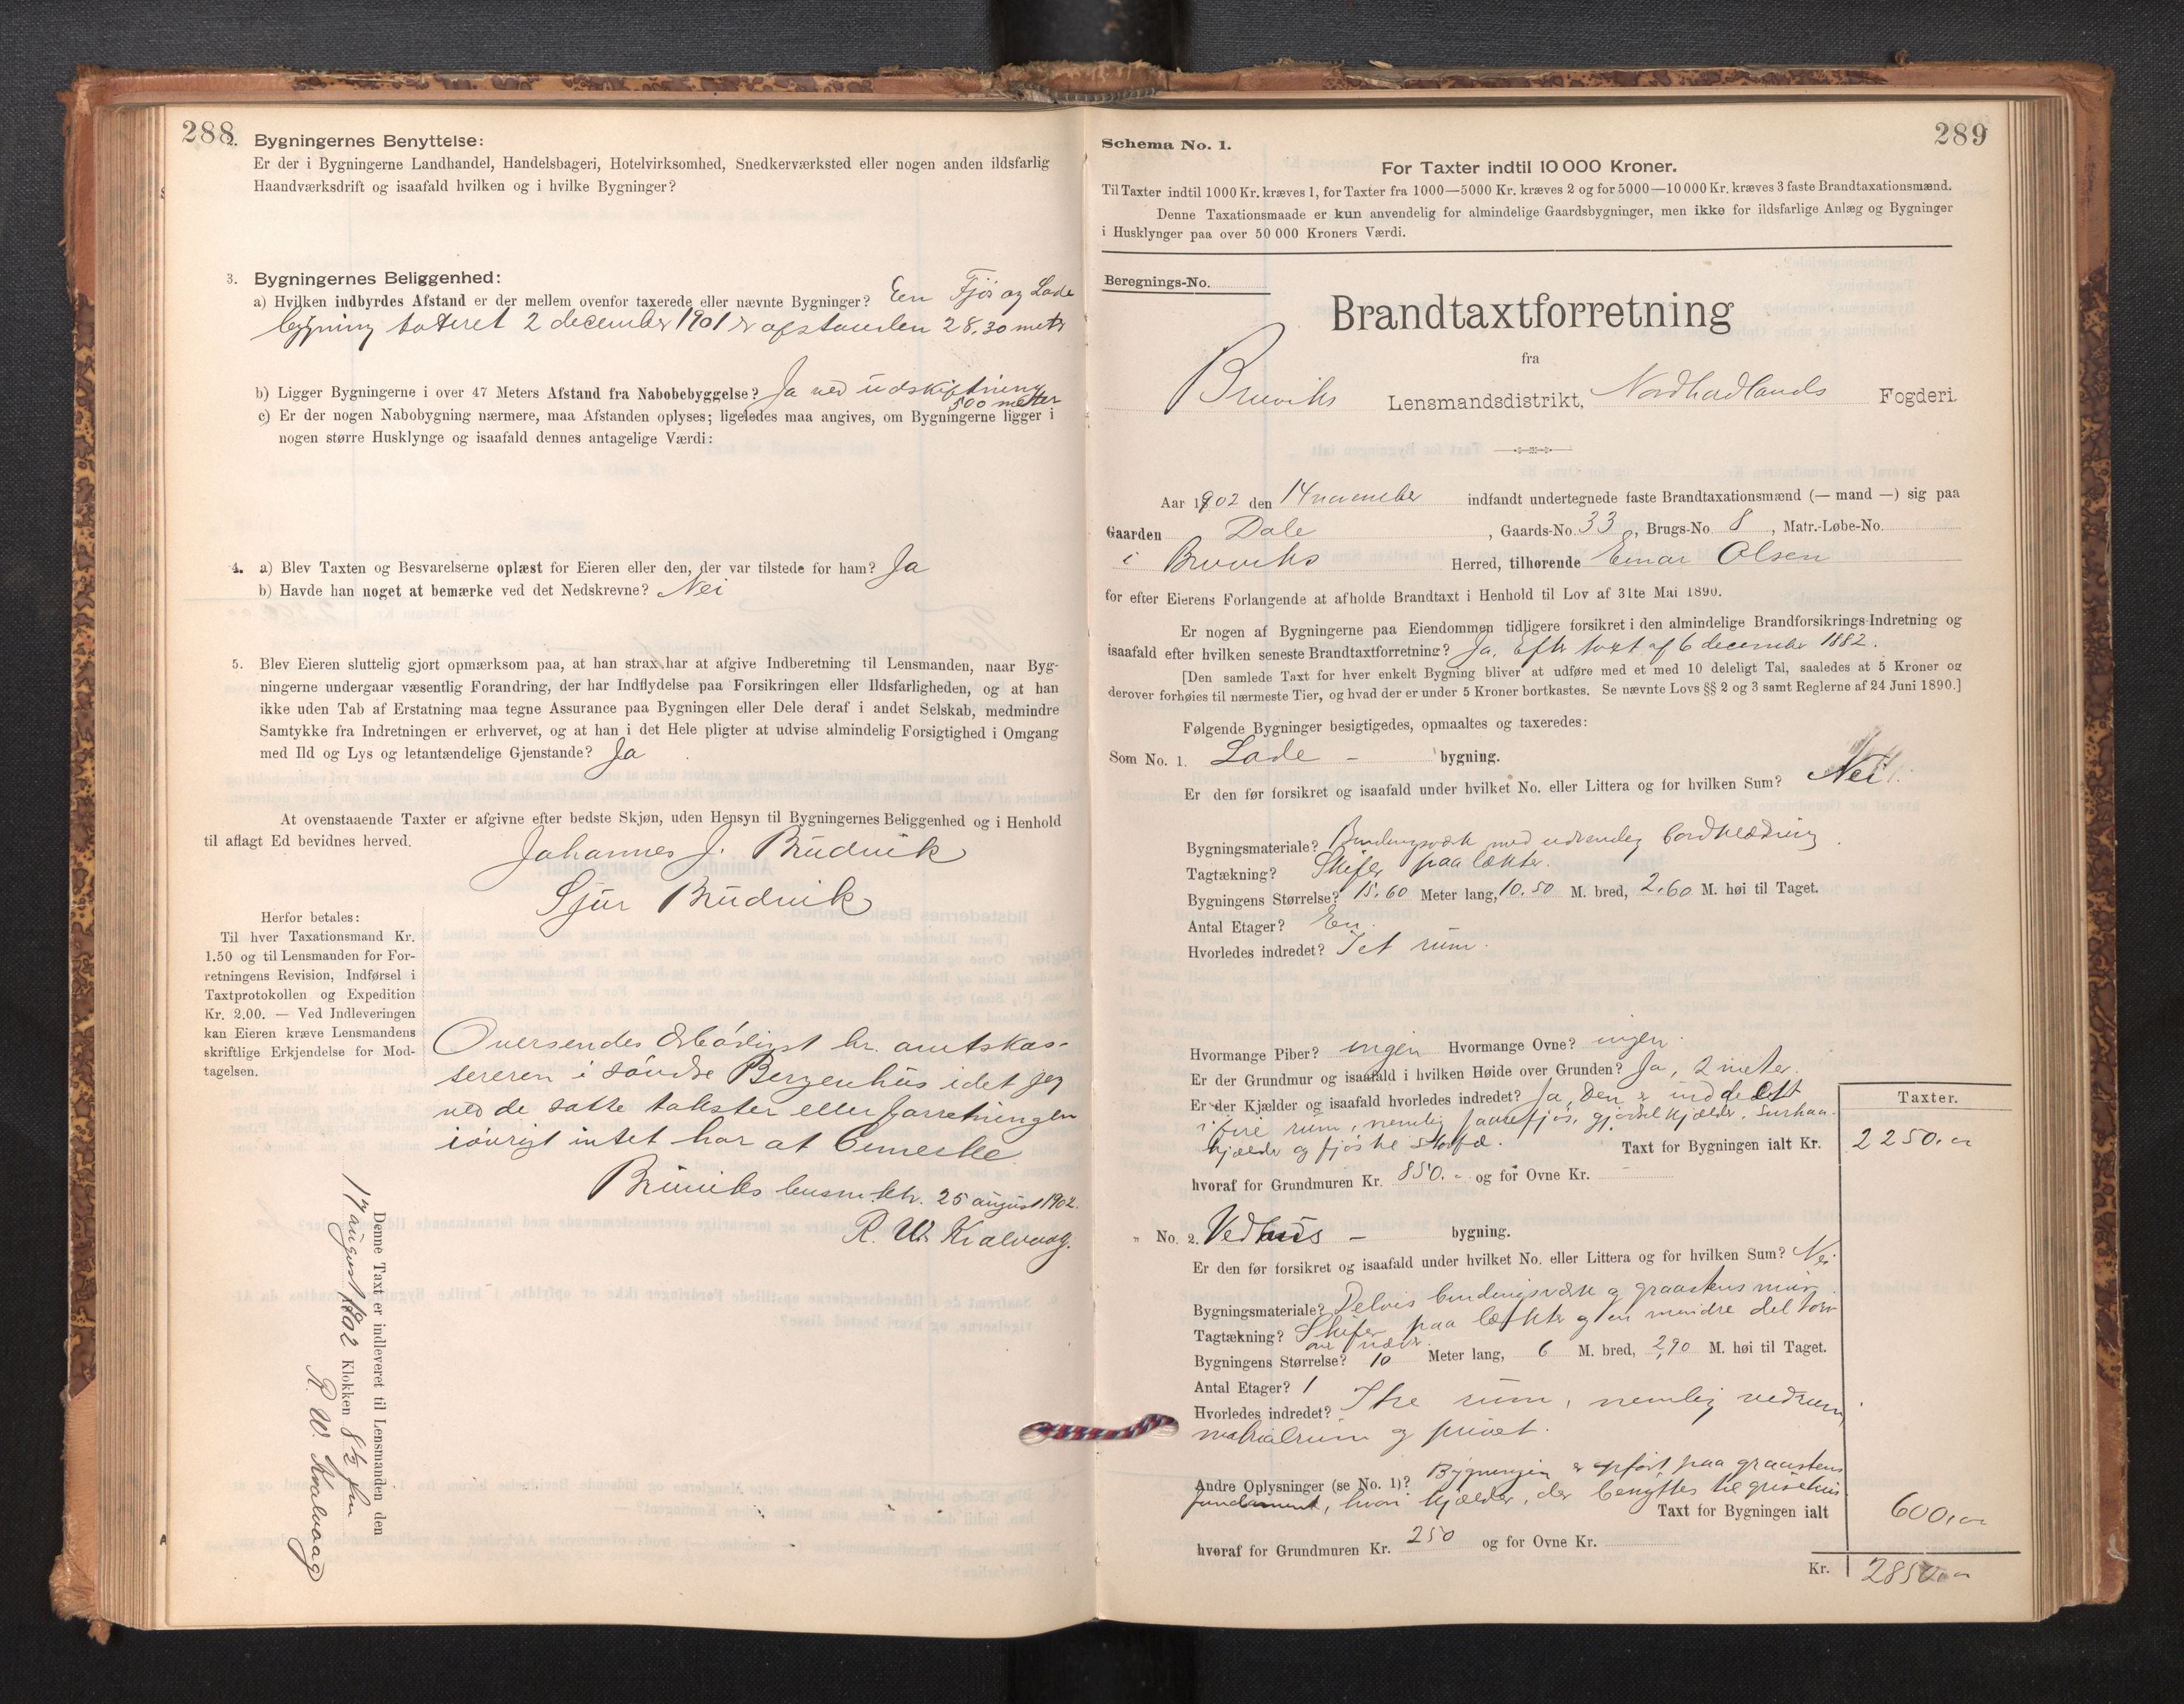 288
2. Bygningernes Benyttelse:
Er der i Bygningerne Landhandel, Handelsbageri, Hotelvirksomhed, Snedkerværksted eller nogen anden ildsfarlig
Haandværksdrift og isaafald hvilken og i hvilke Bygninger?
3. Bygningernes Beliggenhed:
a) Hvilken indbyrdes Afstand er der mellem ovenfor taxerede eller nævnte Bygninger? Een Fjøs og Lade
bygning taxeret 2 december 1901 er afstanden 28,30 meter
b) Ligger Bygningerne i over 47 Meters Afstand fra Nabobebyggelse? Ja ved udskiftning
500 metter
c) Er der nogen Nabobygning nærmere, maa Afstanden oplyses; ligeledes maa angives, om Bygningerne ligger i
nogen større Husklynge og isaafald dennes antagelige Værdi:
4. a) Blev Taxten og Besvarelserne oplæst for Eieren eller den, der var tilstede for ham? Ja
b) Havde han noget at bemærke ved det Nedskrevne? Nei
5. Blev Eieren sluttelig gjort opmærksom paa, at han strax har at afgive Indberetning til Lensmanden, naar Byg-
ningerne undergaar væsentlig Forandring, der har Indflydelse paa Forsikringen eller Ildsfarligheden, og at han
ikke uden Tab af Erstatning maa tegne Assurance paa Bygningen eller Dele deraf i andet Selskab, medmindre
Samtykke fra Indretningen er erhvervet, og at han i det Hele pligter at udvise almindelig Forsigtighed i Omgang
med Ild og Lys og letantændelige Gjenstande? Ja
At ovenstaaende Taxter er afgivne efter bedste Skjøn, uden Hensyn til Bygningernes Beliggenhed og i Henhold
til aflagt Ed bevidnes herved.
Johannes J. Brudvik
Sjur Brudvik
Herfor betales:
Til hver Taxationsmand Kr.
1.50 og til Lensmanden for For-
retningens Revision, Indførsel i
Taxtprotokollen og Expedition
Kr. 2.00. — Ved Indleveringen
kan Eieren kræve Lensmandens
skriftlige Erkjendelse for Mod-
tagelsen.
Oversendes ærbødigst hr. amtskas-
sereren i søndre Bergenhus idet jeg
ved de satte takster eller forretningen
iøvrigt intet har at bemerke
Bruviks lensm.ktr. 25 august 1902.
R. W. Kvalvaag.
Denne Taxt er indleveret til Lensmanden den
17 august 1902 Klokken 8 1/2 fm
R. W. Kvalvaag
289
Schema No. 1.
For Taxter indtil 10 000 Kroner.
Til Taxter indtil 1000 Kr. kræves 1, for Taxter fra 1000—5000 Kr. kræves 2 og for 5000—10 000 Kr. kræves 3 faste Brandtaxationsmænd.
Denne Taxationsmaade er kun anvendelig for almindelige Gaardsbygninger, men ikke for ildsfarlige Anlæg og Bygninger
i Husklynger paa over 50 000 Kroners Værdi.
Beregnings-No.
Brandtaxtforretning
fra
Bruviks Lensmandsdistrikt, Nordhordlands Fogderi.
Aar 1902 den 14 november indfandt undertegnede faste Brandtaxationsmænd (— mand —) sig paa
Gaarden Dale, Gaards-No. 33, Brugs-No. 8, Matr.-Løbe-No.
i Bruviks Herred, tilhørende Einar Olsen
for efter Eierens Forlangende at afholde Brandtaxt i Henhold til Lov af 31te Mai 1890.
Er nogen af Bygningerne paa Eiendommen tidligere forsikret i den almindelige Brandforsikrings-Indretning og
isaafald efter hvilken seneste Brandtaxtforretning? Ja, Efter taxt af 6 december 1882.
[Den samlede Taxt for hver enkelt Bygning bliver at udføre med et med 10 deleligt Tal, saaledes at 5 Kroner og
derover forhøies til nærmeste Tier, og hvad der er under 5 Kroner bortkastes. Se nævnte Lovs §§ 2 og 3 samt Reglerne af 24 Juni 1890.]
Følgende Bygninger besigtigedes, opmaaltes og taxeredes:
Som No. 1. Lade - bygning.
Er den før forsikret og isaafald under hvilket No. eller Littera og for hvilken Sum? Nei
Bygningsmateriale? Bindingsværk med udvendig bordklædning.
Tagtækning? Skifer paa lækter.
Bygningens Størrelse? 15.60 Meter lang, 10.50 M. bred, 2.60 M. høi til Taget.
Antal Etager? En
Hvorledes indredet? I et rum.
Hvormange Piber? ingen Hvormange Ovne? ingen.
Er der Grundmur og isaafald i hvilken Høide over Grunden? Ja, 2 meter.
Er der Kjælder og isaafald hvorledes indredet? Ja, Den er inddelt
i fire rum, nemlig faarefjøs, gjødselkjelder,
kjælder og fjøs til storfæ.
Taxter.
Taxt for Bygningen ialt Kr. 2250,00
hvoraf for Grundmuren Kr. 850.- og for Ovne Kr.
" No. 2. Vedhus - bygning.
Er den før forsikret og isaafald under hvilket No. eller Littera og for hvilken Sum? Nei
Bygningsmateriale? Delvis bindingsværk og graastens mur.
Tagtækning? Skifer paa lækter og en mindre del torv
over næver.
Bygningens Størrelse? 10 Meter lang, 6 M. bred, 2,90 M. høi til Taget.
Antal Etager? 1
Hvorledes indredet? I tre rum, nemlig vedrum,
matrialrum og privet.
Andre Oplysninger (se No. 1)? Bygningen er opført paa graastens
fundament, hvori kjælder, der benyttes til grisehus
Taxt for Bygningen ialt 600,00
hvoraf for Grundmuren Kr. 250 og for Ovne Kr.
Kr. 2850,00